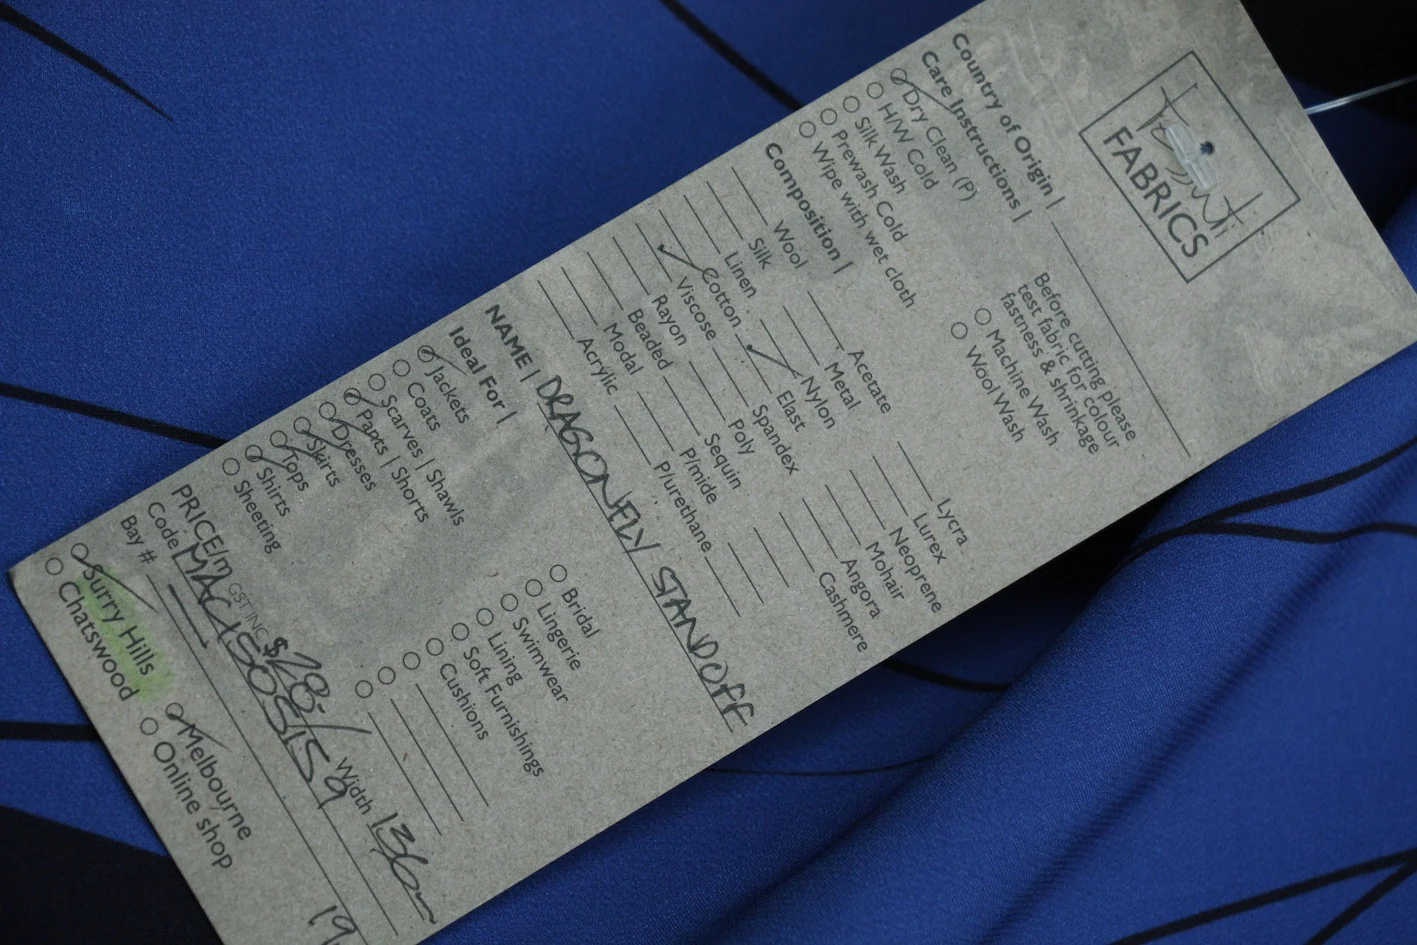 Tessuti
FABRICS
Country of Origin |
Care Instructions |
Dry Clean (P)
H/W Cold
Silk Wash
Prewash Cold
Wipe with wet cloth
Before cutting please
test fabric for colour
fastness & shrinkage
Machine Wash
Wool Wash
Composition |
Wool
Silk
Linen
Cotton
Viscose
Rayon
Beaded
Modal
Acrylic
Acetate
Metal
Nylon
Elast
Spandex
Poly
Sequin
P/mide
P/urethane
Lycra
Lurex
Neoprene
Mohair
Angora
Cashmere
NAME | DRAGONFLY STANDOFF
Ideal For |
Jackets
Coats
Scarves | Shawls
Pants | Shorts
Dresses
Skirts
Tops
Shirts
Sheeting
Bridal
Lingerie
Swimwear
Lining
Soft Furnishings
Cushions
PRICE/m GST INC $ Width 136
Code
Bay #
Surry Hills
Chatswood
Melbourne
Online shop